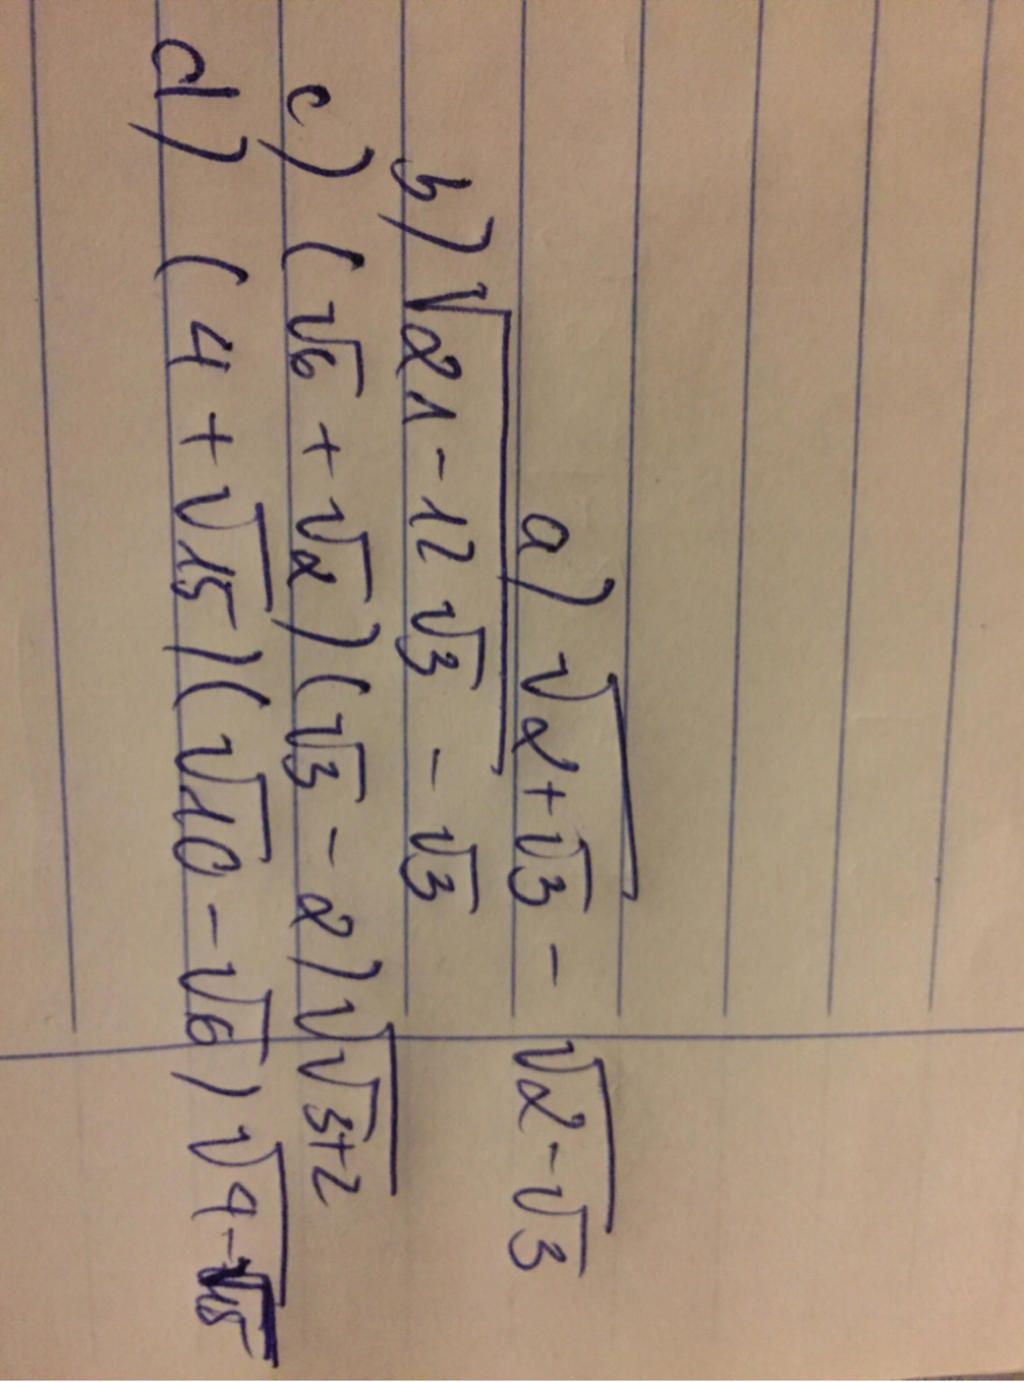 a) √(2+√3) - √(2-√3)
b) √(21-12√3) - √3
c) (√6 + √2)(√3 - 2)√(√3+2)
d) (4 + √15)(√10 - √6)√(4-√15)